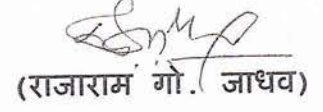 (राजाराम गो. जाधव)